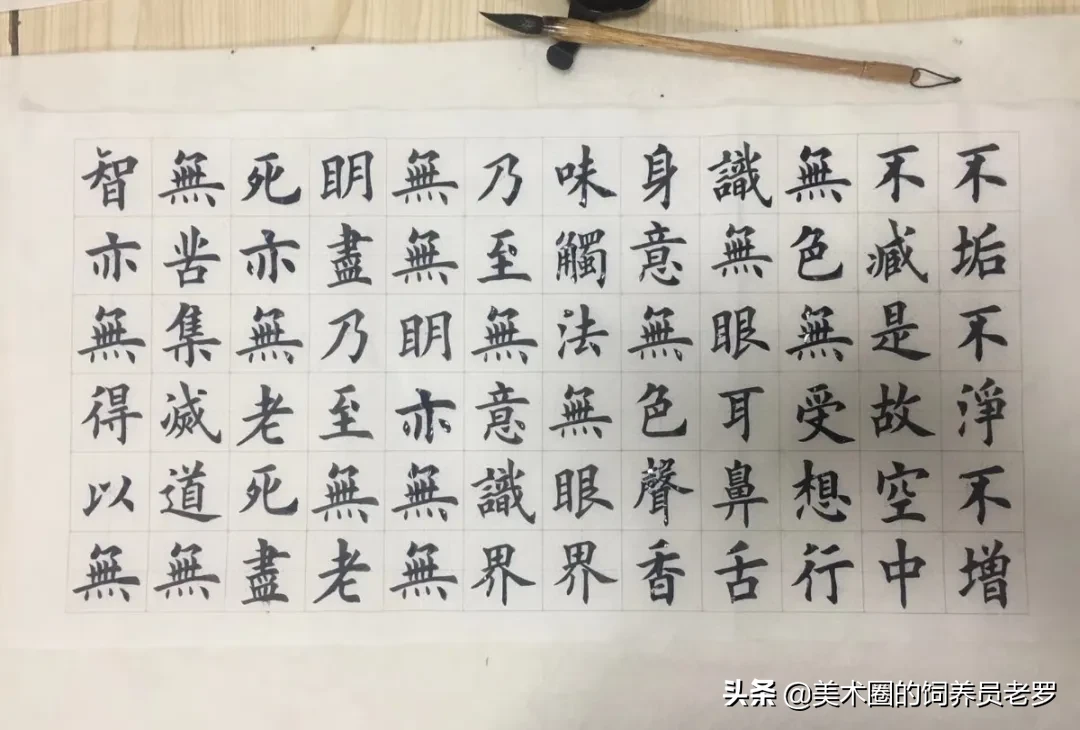 不垢不淨不增
不减是故空中
無色無受想行
識無眼耳鼻舌
身意無色聲香
味觸法無眼界
乃至無意識界
無無明亦無無
明盡乃至無老
死亦無老死盡
無苦集滅道無
智亦無得以無
头条 @美术圈的饲养员老罗